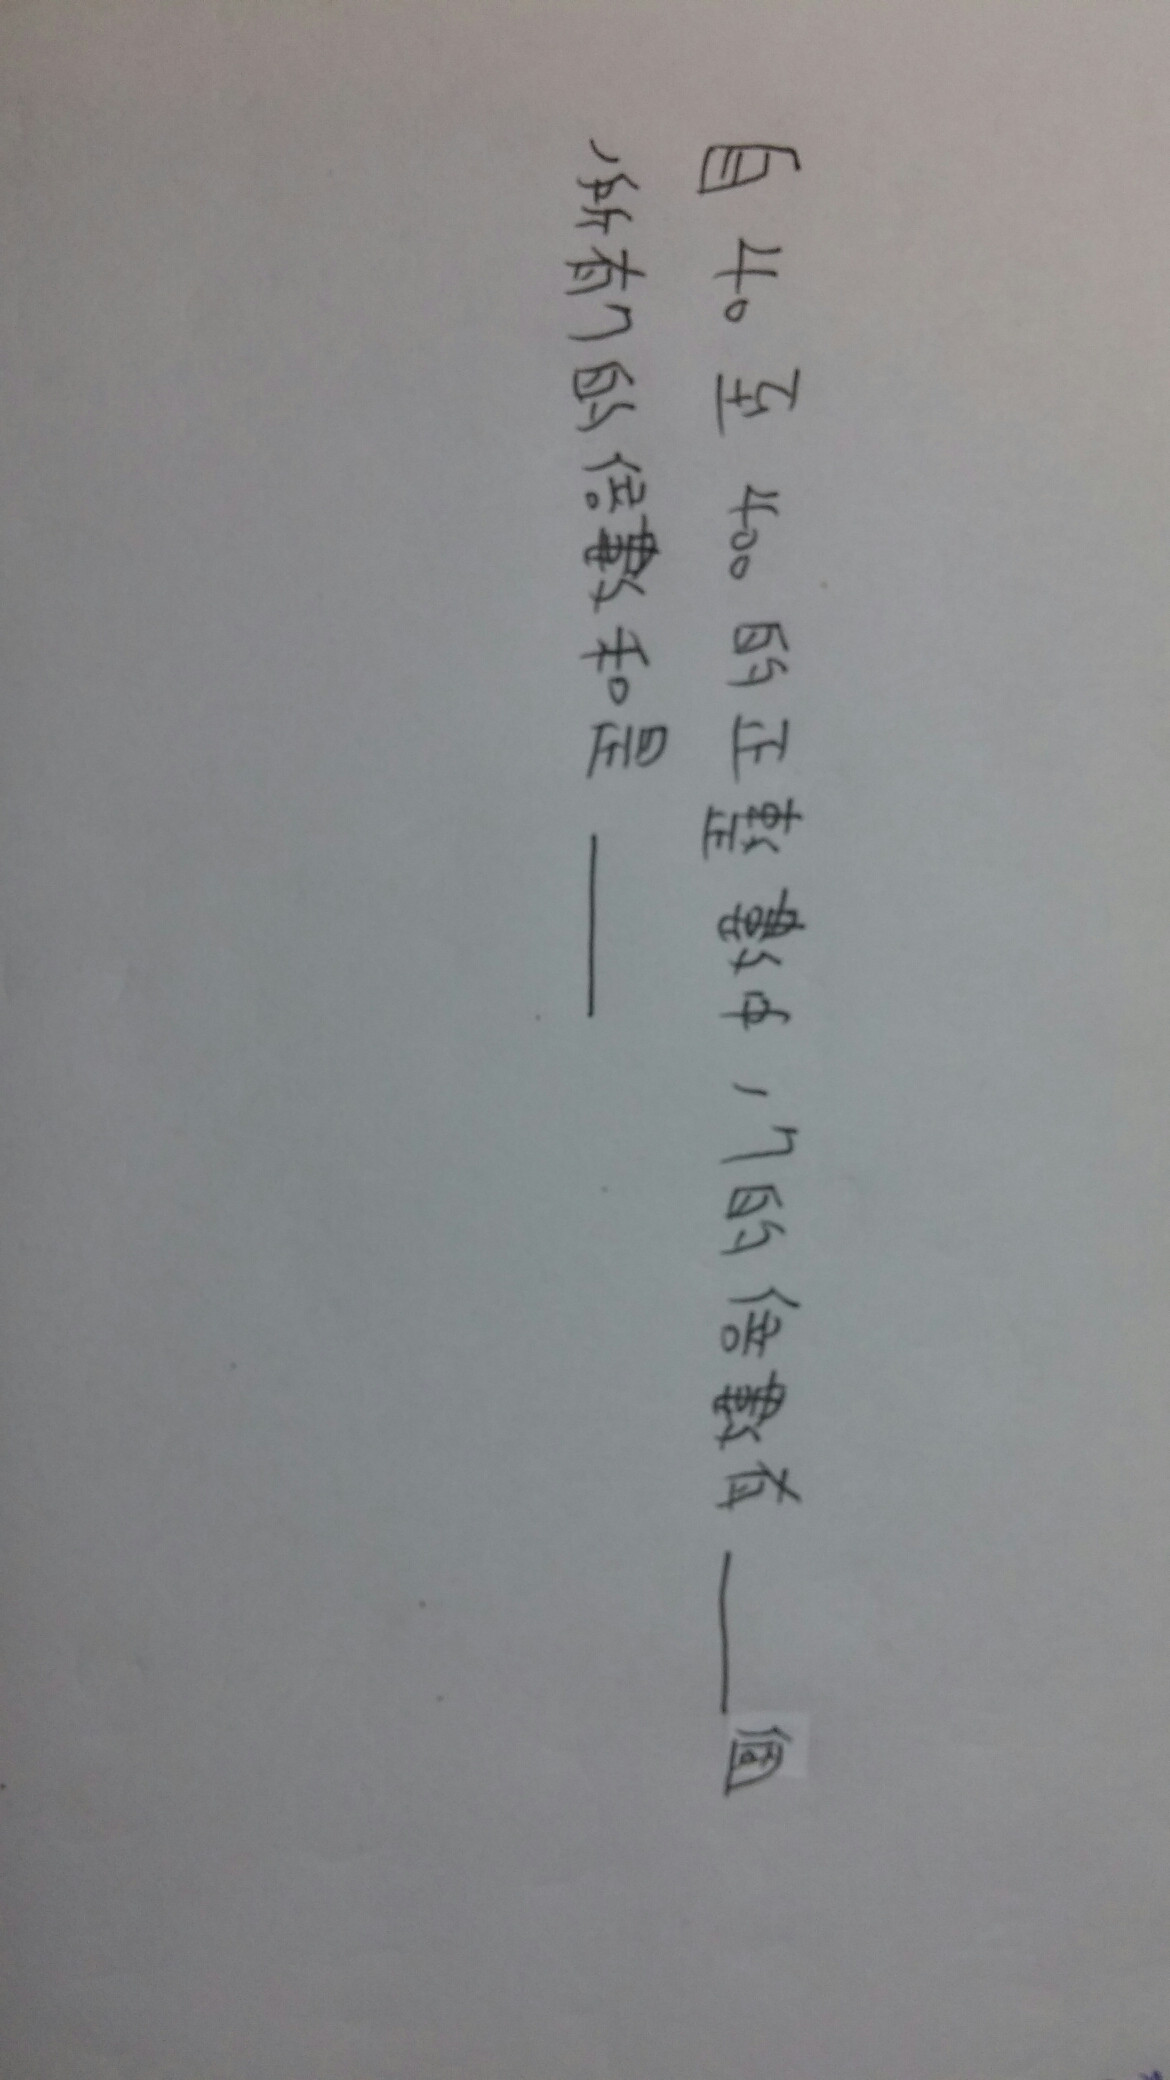 自40至400的正整數中，7的倍數有____個
，所有7的倍數和是____